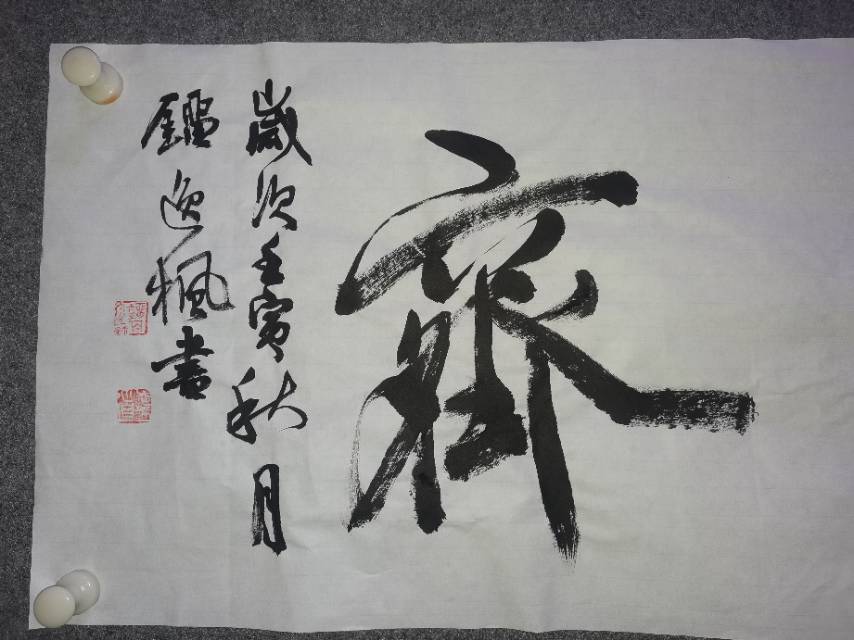 齋
歲次壬寅秋月
鑑逸楓書